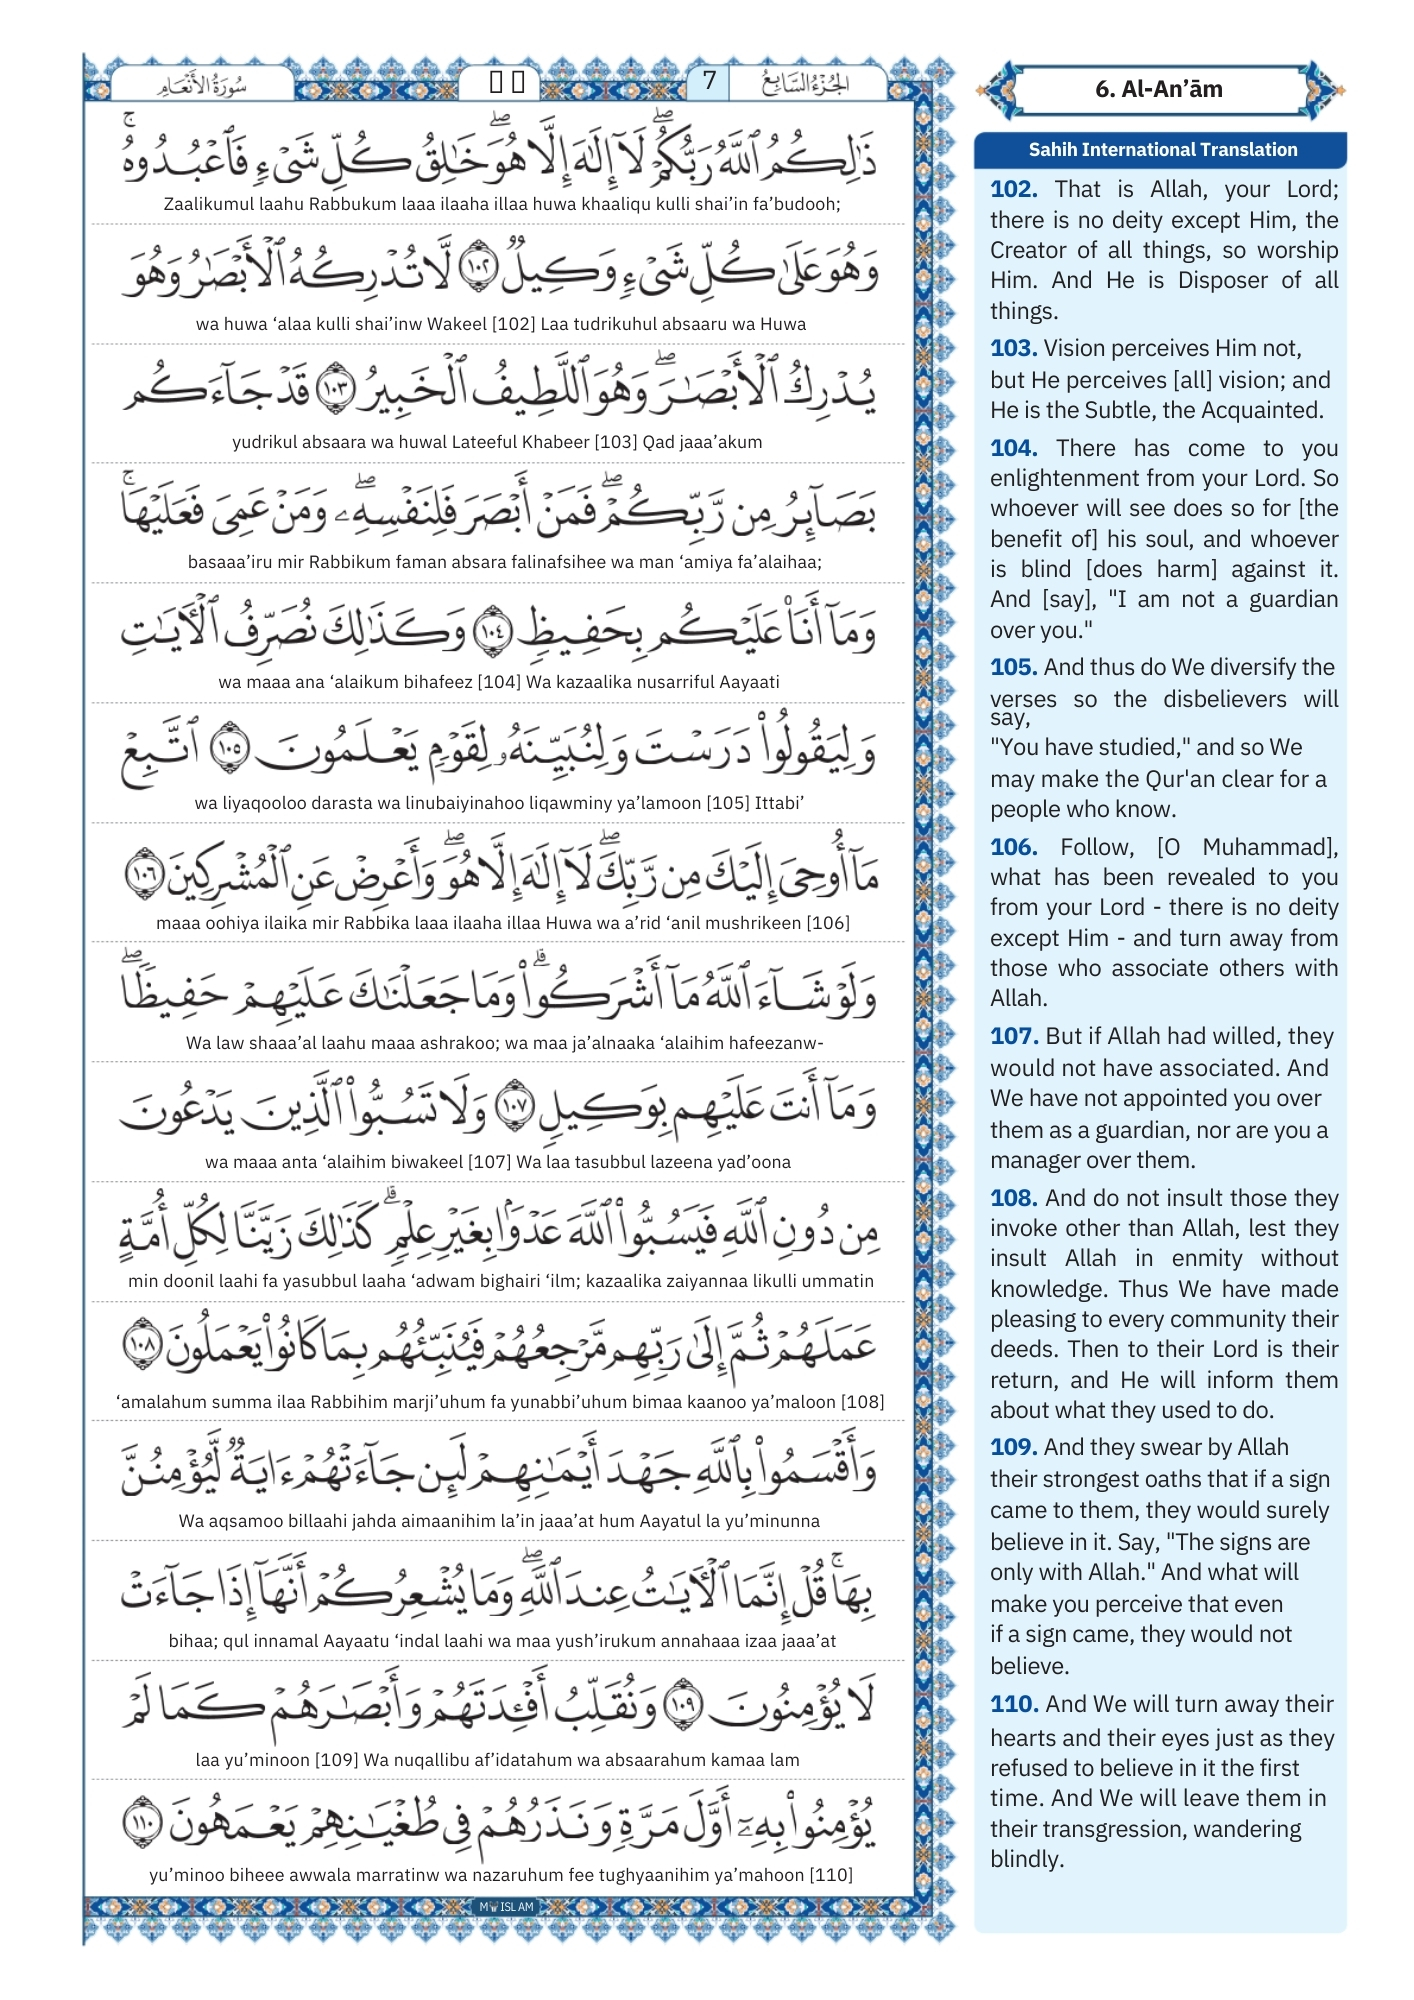 سُورَةُ الأَنْعَام
7
الجُزْءُ السَّابِعُ
ذَٰلِكُمُ ٱللَّهُ رَبُّكُمْ ۖ لَآ إِلَٰهَ إِلَّا هُوَ ۖ خَٰلِقُ كُلِّ شَىْءٍ فَٱعْبُدُوهُ ۚ
Zaalikumul laahu Rabbukum laaa ilaaha illaa huwa khaaliqu kulli shai’in fa’budooh;
وَهُوَ عَلَىٰ كُلِّ شَىْءٍ وَكِيلٌ ١٠٢ لَّا تُدْرِكُهُ ٱلْأَبْصَٰرُ وَهُوَ
wa huwa ‘alaa kulli shai’inw Wakeel [102] Laa tudrikuhul absaaru wa Huwa
يُدْرِكُ ٱلْأَبْصَٰرَ ۖ وَهُوَ ٱللَّطِيفُ ٱلْخَبِيرُ ١٠٣ قَدْ جَآءَكُم
yudrikul absaara wa huwal Lateeful Khabeer [103] Qad jaaa’akum
بَصَآئِرُ مِن رَّبِّكُمْ ۖ فَمَنْ أَبْصَرَ فَلِنَفْسِهِۦ ۖ وَمَنْ عَمِىَ فَعَلَيْهَا ۚ
basaaa’iru mir Rabbikum faman absara falinafsihee wa man ‘amiya fa’alaihaa;
وَمَآ أَنَا۠ عَلَيْكُم بِحَفِيظٍ ١٠٤ وَكَذَٰلِكَ نُصَرِّفُ ٱلْـَٔايَٰتِ
wa maaa ana ‘alaikum bihafeez [104] Wa kazaalika nusarriful Aayaati
وَلِيَقُولُوا۟ دَرَسْتَ وَلِنُبَيِّنَهُۥ لِقَوْمٍ يَعْلَمُونَ ١٠٥ ٱتَّبِعْ
wa liyaqooloo darasta wa linubaiyinahoo liqawminy ya’lamoon [105] Ittabi’
مَآ أُوحِىَ إِلَيْكَ مِن رَّبِّكَ ۖ لَآ إِلَٰهَ إِلَّا هُوَ ۖ وَأَعْرِضْ عَنِ ٱلْمُشْرِكِينَ ١٠٦
maaa oohiya ilaika mir Rabbika laaa ilaaha illaa Huwa wa a’rid ‘anil mushrikeen [106]
وَلَوْ شَآءَ ٱللَّهُ مَآ أَشْرَكُوا۟ ۗ وَمَا جَعَلْنَٰكَ عَلَيْهِمْ حَفِيظًا ۖ
Wa law shaaa’al laahu maaa ashrakoo; wa maa ja’alnaaka ‘alaihim hafeezanw-
وَمَآ أَنتَ عَلَيْهِم بِوَكِيلٍ ١٠٧ وَلَا تَسُبُّوا۟ ٱلَّذِينَ يَدْعُونَ
wa maaa anta ‘alaihim biwakeel [107] Wa laa tasubbul lazeena yad’oona
مِن دُونِ ٱللَّهِ فَيَسُبُّوا۟ ٱللَّهَ عَدْوًۢا بِغَيْرِ عِلْمٍ ۗ كَذَٰلِكَ زَيَّنَّا لِكُلِّ أُمَّةٍ
min doonil laahi fa yasubbul laaha ‘adwam bighairi ‘ilm; kazaalika zaiyannaa likulli ummatin
عَمَلَهُمْ ثُمَّ إِلَىٰ رَبِّهِم مَّرْجِعُهُمْ فَيُنَبِّئُهُم بِمَا كَانُوا۟ يَعْمَلُونَ ١٠٨
‘amalahum summa ilaa Rabbihim marji’uhum fa yunabbi’uhum bimaa kaanoo ya’maloon [108]
وَأَقْسَمُوا۟ بِٱللَّهِ جَهْدَ أَيْمَٰنِهِمْ لَئِن جَآءَتْهُمْ ءَايَةٌ لَّيُؤْمِنُنَّ
Wa aqsamoo billaahi jahda aimaanihim la’in jaaa’at hum Aayatul la yu’minunna
بِهَا ۚ قُلْ إِنَّمَا ٱلْـَٔايَٰتُ عِندَ ٱللَّهِ ۖ وَمَا يُشْعِرُكُمْ أَنَّهَآ إِذَا جَآءَتْ
bihaa; qul innamal Aayaatu ‘indal laahi wa maa yush’irukum annahaaa izaa jaaa’at
لَا يُؤْمِنُونَ ١٠٩ وَنُقَلِّبُ أَفْـِٔدَتَهُمْ وَأَبْصَٰرَهُمْ كَمَا لَمْ
laa yu’minoon [109] Wa nuqallibu af’idatahum wa absaarahum kamaa lam
يُؤْمِنُوا۟ بِهِۦٓ أَوَّلَ مَرَّةٍ وَنَذَرُهُمْ فِى طُغْيَٰنِهِمْ يَعْمَهُونَ ١١٠
yu’minoo biheee awwala marratinw wa nazaruhum fee tughyaanihim ya’mahoon [110]
6. Al-An’ām
Sahih International Translation
102. That is Allah, your Lord;
there is no deity except Him, the
Creator of all things, so worship
Him. And He is Disposer of all
things.
103. Vision perceives Him not,
but He perceives [all] vision; and
He is the Subtle, the Acquainted.
104. There has come to you
enlightenment from your Lord. So
whoever will see does so for [the
benefit of] his soul, and whoever
is blind [does harm] against it.
And [say], "I am not a guardian
over you."
105. And thus do We diversify the
verses so the disbelievers will
say,
"You have studied," and so We
may make the Qur'an clear for a
people who know.
106. Follow, [O Muhammad],
what has been revealed to you
from your Lord - there is no deity
except Him - and turn away from
those who associate others with
Allah.
107. But if Allah had willed, they
would not have associated. And
We have not appointed you over
them as a guardian, nor are you a
manager over them.
108. And do not insult those they
invoke other than Allah, lest they
insult Allah in enmity without
knowledge. Thus We have made
pleasing to every community their
deeds. Then to their Lord is their
return, and He will inform them
about what they used to do.
109. And they swear by Allah
their strongest oaths that if a sign
came to them, they would surely
believe in it. Say, "The signs are
only with Allah." And what will
make you perceive that even
if a sign came, they would not
believe.
110. And We will turn away their
hearts and their eyes just as they
refused to believe in it the first
time. And We will leave them in
their transgression, wandering
blindly.